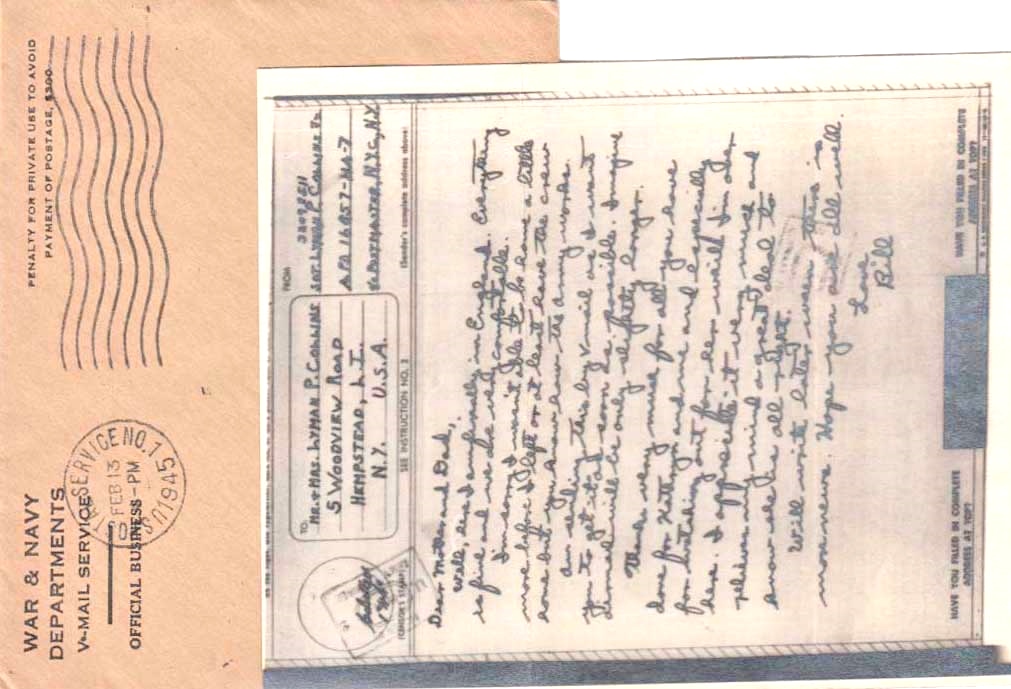 WAR & NAVY
DEPARTMENTS
V-MAIL SERVICE
OFFICIAL BUSINESS
PENALTY FOR PRIVATE USE TO AVOID
PAYMENT OF POSTAGE, $300
SERVICE NO. 1
FEB 13
-PM
1945
TO:
MR. & MRS. LYMAN P. COLLINS
5 WOODVIEW ROAD
HEMPSTEAD, L.I.
N.Y. U.S.A.
FROM
SGT. LYMAN P. COLLINS JR.
APO 16857-
% POSTMASTER, N.Y.C., N.Y.
(CENSOR'S STAMP)
SEE INSTRUCTION NO. 2
(Sender's complete address above)
Dear Mother and Dad,
Well, here I am finally in England. Everything
is fine and we're really comfortable.
I'm sorry I wasn't able to be home a little
more before I left or at least have the crew
come but you know how the army works.
Am sending this by V-mail as I want
you to get it as soon as possible. Imagine
will be only slightly longer.
Thanks very much for all you have
done for and me and especially
for watching out for her while I'm over
here. I appreciate it very much and
relieves my mind a great deal to
know she is all right.
Will write later when there is
more news. Hope you are all well.
Love
Bill
HAVE YOU FILLED IN COMPLETE
ADDRESS AT TOP?
HAVE YOU FILLED IN COMPLETE
ADDRESS AT TOP?